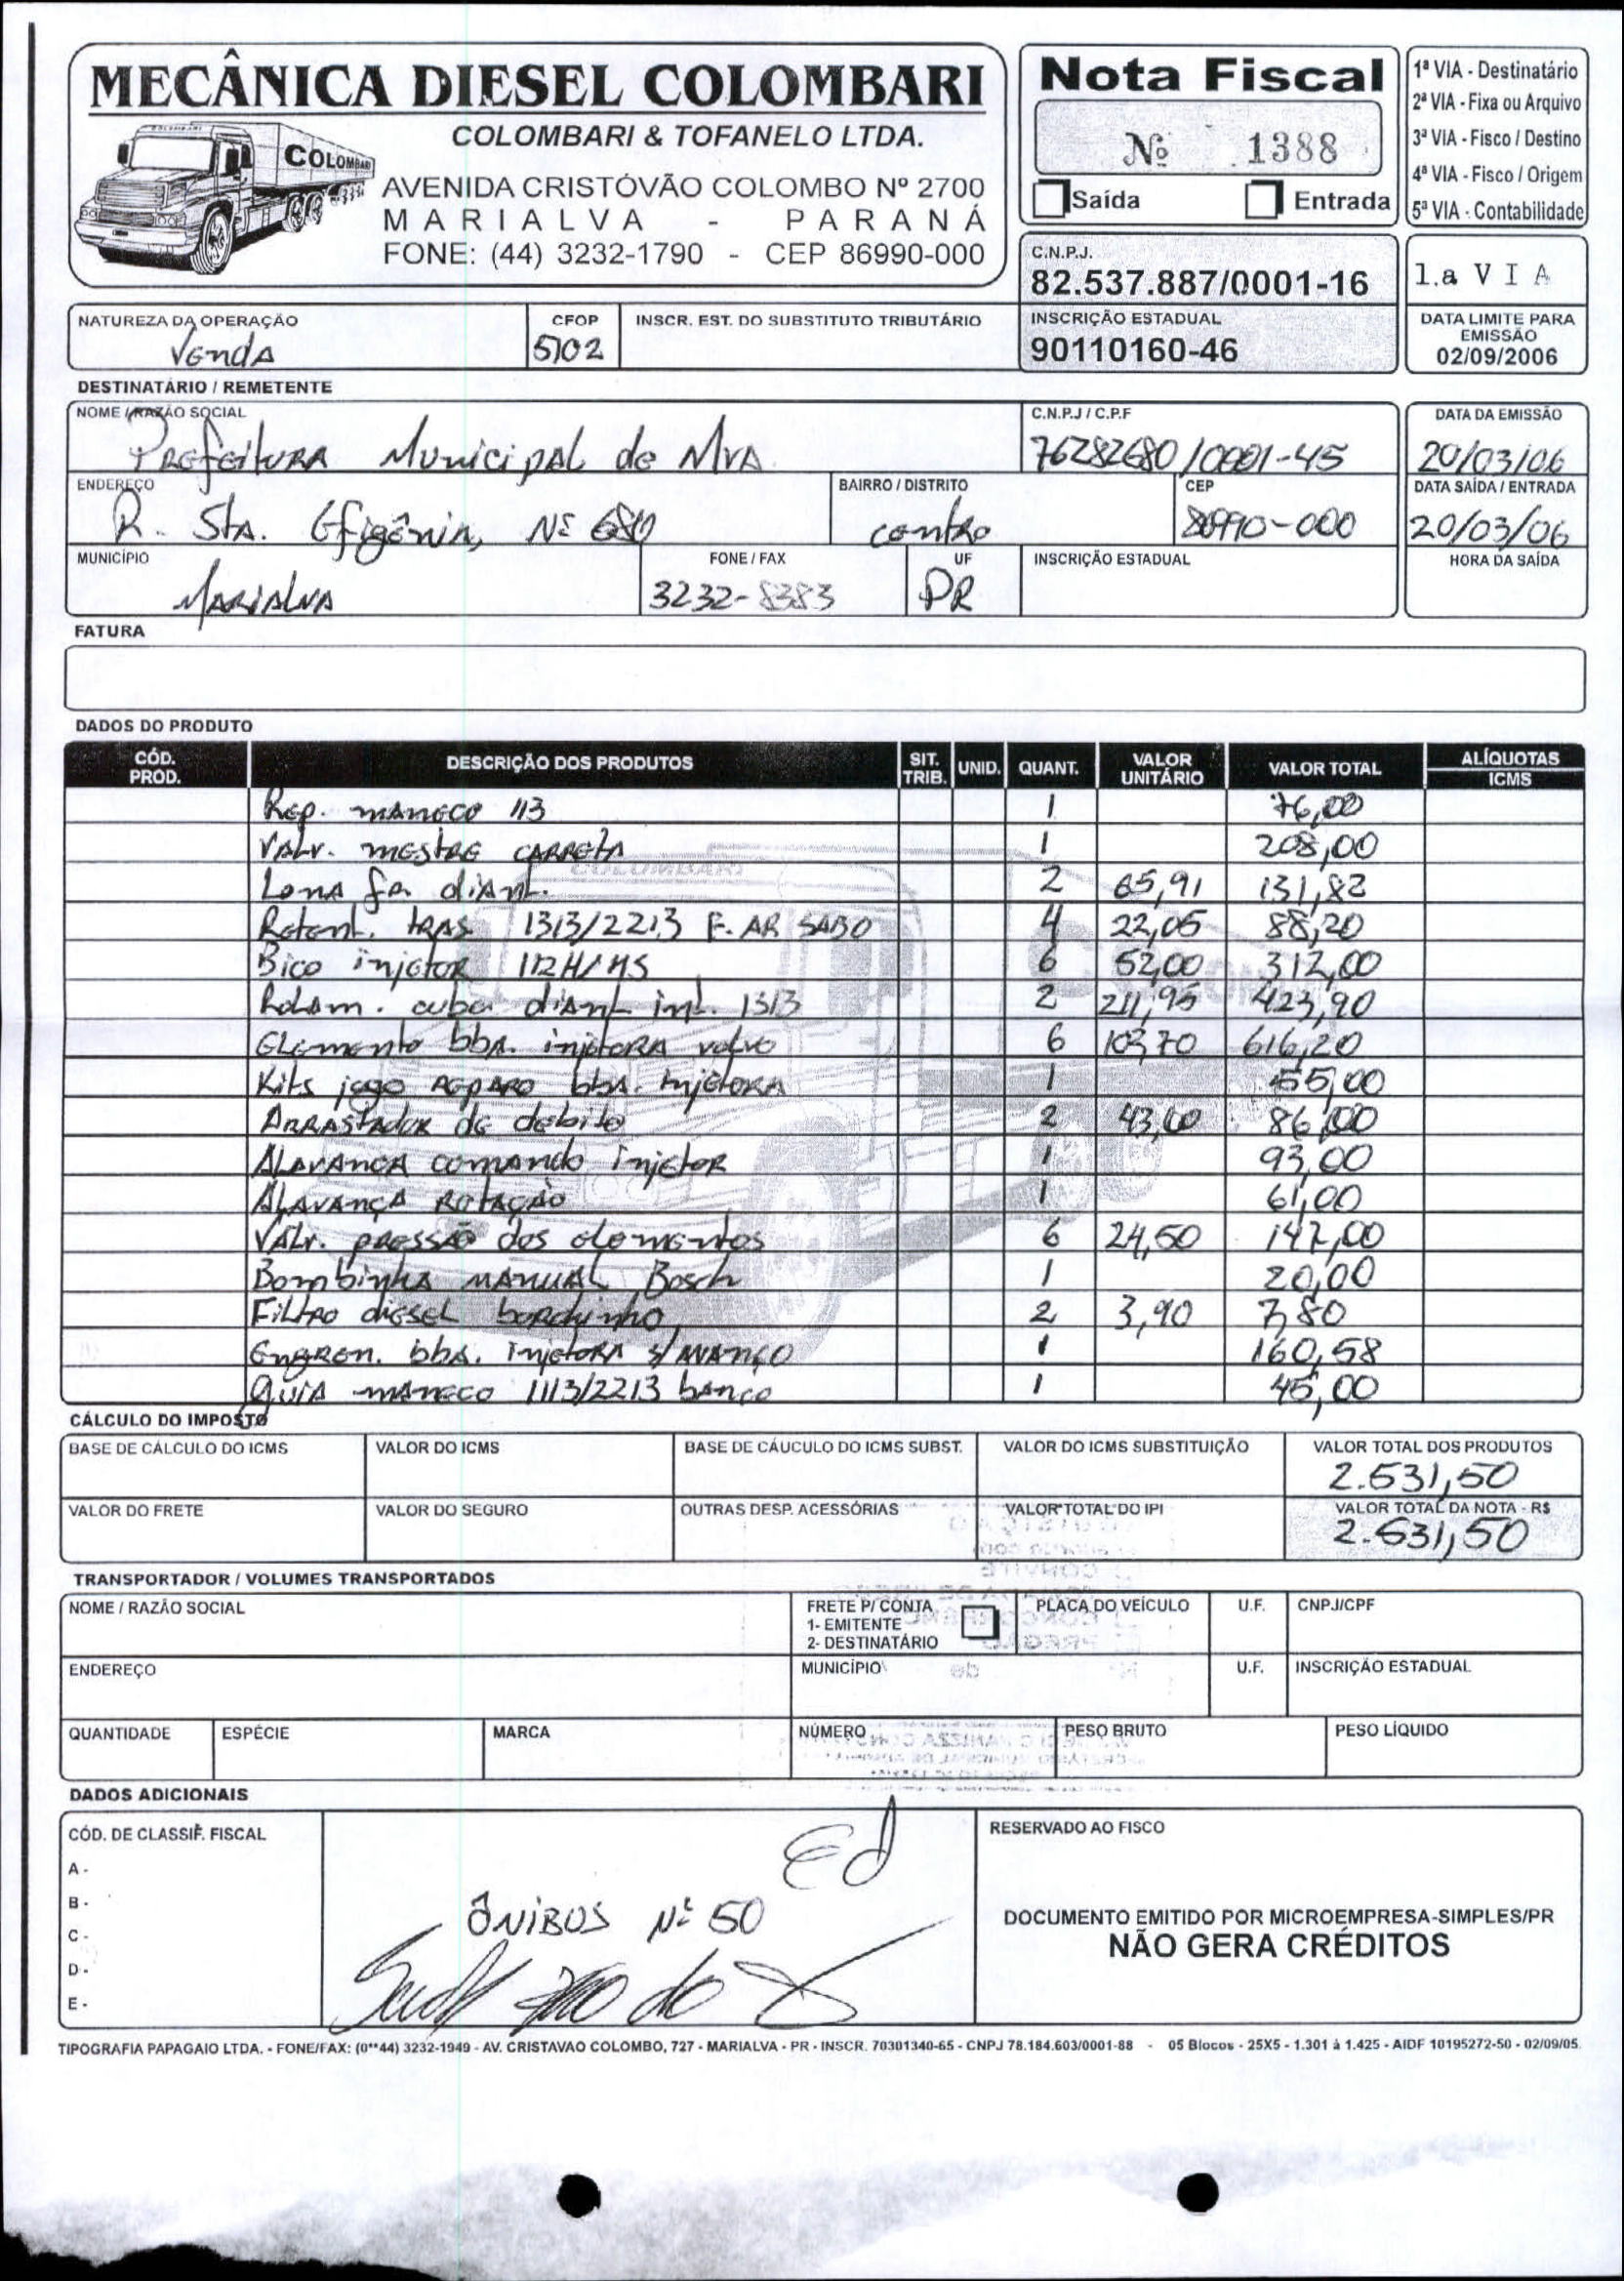 MECÂNICA DIESEL COLOMBARI
COLOMBARI & TOFANELO LTDA.
COLOMBARI
AVENIDA CRISTÓVÃO COLOMBO Nº 2700
MARIALVA - PARANÁ
FONE: (44) 3232-1790 - CEP 86990-000
Nota Fiscal
Nº 1388
Saída Entrada
1ª VIA - Destinatário
2ª VIA - Fixa ou Arquivo
3ª VIA - Fisco / Destino
4ª VIA - Fisco / Origem
5ª VIA - Contabilidade
C.N.P.J.
82.537.887/0001-16
1.a VIA
NATUREZA DA OPERAÇÃO CFOP INSCR. EST. DO SUBSTITUTO TRIBUTÁRIO INSCRIÇÃO ESTADUAL DATA LIMITE PARA EMISSÃO
Venda 5102 90110160-46 02/09/2006
DESTINATÁRIO / REMETENTE
NOME / RAZÃO SOCIAL C.N.P.J / C.P.F DATA DA EMISSÃO
Prefeitura Municipal de Mva 76282680/0001-45 20/03/06
ENDEREÇO BAIRRO / DISTRITO CEP DATA SAÍDA / ENTRADA
R. Sta. Efigênia, Nº 680 centro 86990-000 20/03/06
MUNICÍPIO FONE / FAX UF INSCRIÇÃO ESTADUAL HORA DA SAÍDA
Marialva 3232-8383 PR
FATURA
DADOS DO PRODUTO
CÓD. PROD. DESCRIÇÃO DOS PRODUTOS SIT. TRIB. UNID. QUANT. VALOR UNITÁRIO VALOR TOTAL ALÍQUOTAS ICMS
Rep. maneco 113 1 76,00
Valv. mestre carreta 1 208,00
Lona fr. diant. 2 65,91 131,82
Retent. tras. 1313/2213 F. AR SABO 4 22,05 88,20
Bico injetor 112H/HS 6 52,00 312,00
Rolam. cubo diant. int. 1313 2 211,95 423,90
Elemento bba. injetora volvo 6 102,70 616,20
Kits jogo reparo bba. injetora 1 55,00
Arrastador de debito 2 43,00 86,00
Alavanca comando injetor 1 93,00
Alavança Rotação 1 61,00
Válv. pressão dos elementos 6 24,50 147,00
Bombinha manual Bosch 1 20,00
Filtro diesel 2 3,90 7,80
Engren. bba. injetora s/ avanço 1 160,58
Guia maneco 1113/2213 banco 1 45,00
CÁLCULO DO IMPOSTO
BASE DE CÁLCULO DO ICMS VALOR DO ICMS BASE DE CÁUCULO DO ICMS SUBST. VALOR DO ICMS SUBSTITUIÇÃO VALOR TOTAL DOS PRODUTOS
2.531,50
VALOR DO FRETE VALOR DO SEGURO OUTRAS DESP. ACESSÓRIAS VALOR TOTAL DO IPI VALOR TOTAL DA NOTA - R$
2.531,50
TRANSPORTADOR / VOLUMES TRANSPORTADOS
NOME / RAZÃO SOCIAL FRETE P/ CONTA 1- EMITENTE 2- DESTINATÁRIO PLACA DO VEÍCULO U.F. CNPJ/CPF
ENDEREÇO MUNICÍPIO U.F. INSCRIÇÃO ESTADUAL
QUANTIDADE ESPÉCIE MARCA NÚMERO PESO BRUTO PESO LÍQUIDO
DADOS ADICIONAIS
CÓD. DE CLASSIF. FISCAL
A -
B -
C -
D -
E -
Ed
Ônibus Nº 50
RESERVADO AO FISCO
DOCUMENTO EMITIDO POR MICROEMPRESA-SIMPLES/PR
NÃO GERA CRÉDITOS
TIPOGRAFIA PAPAGAIO LTDA. - FONE/FAX: (0**44) 3232-1949 - AV. CRISTAVAO COLOMBO, 727 - MARIALVA - PR - INSCR. 70301340-65 - CNPJ 78.184.603/0001-88 - 05 Blocos - 25X5 - 1.301 à 1.425 - AIDF 10195272-50 - 02/09/05.